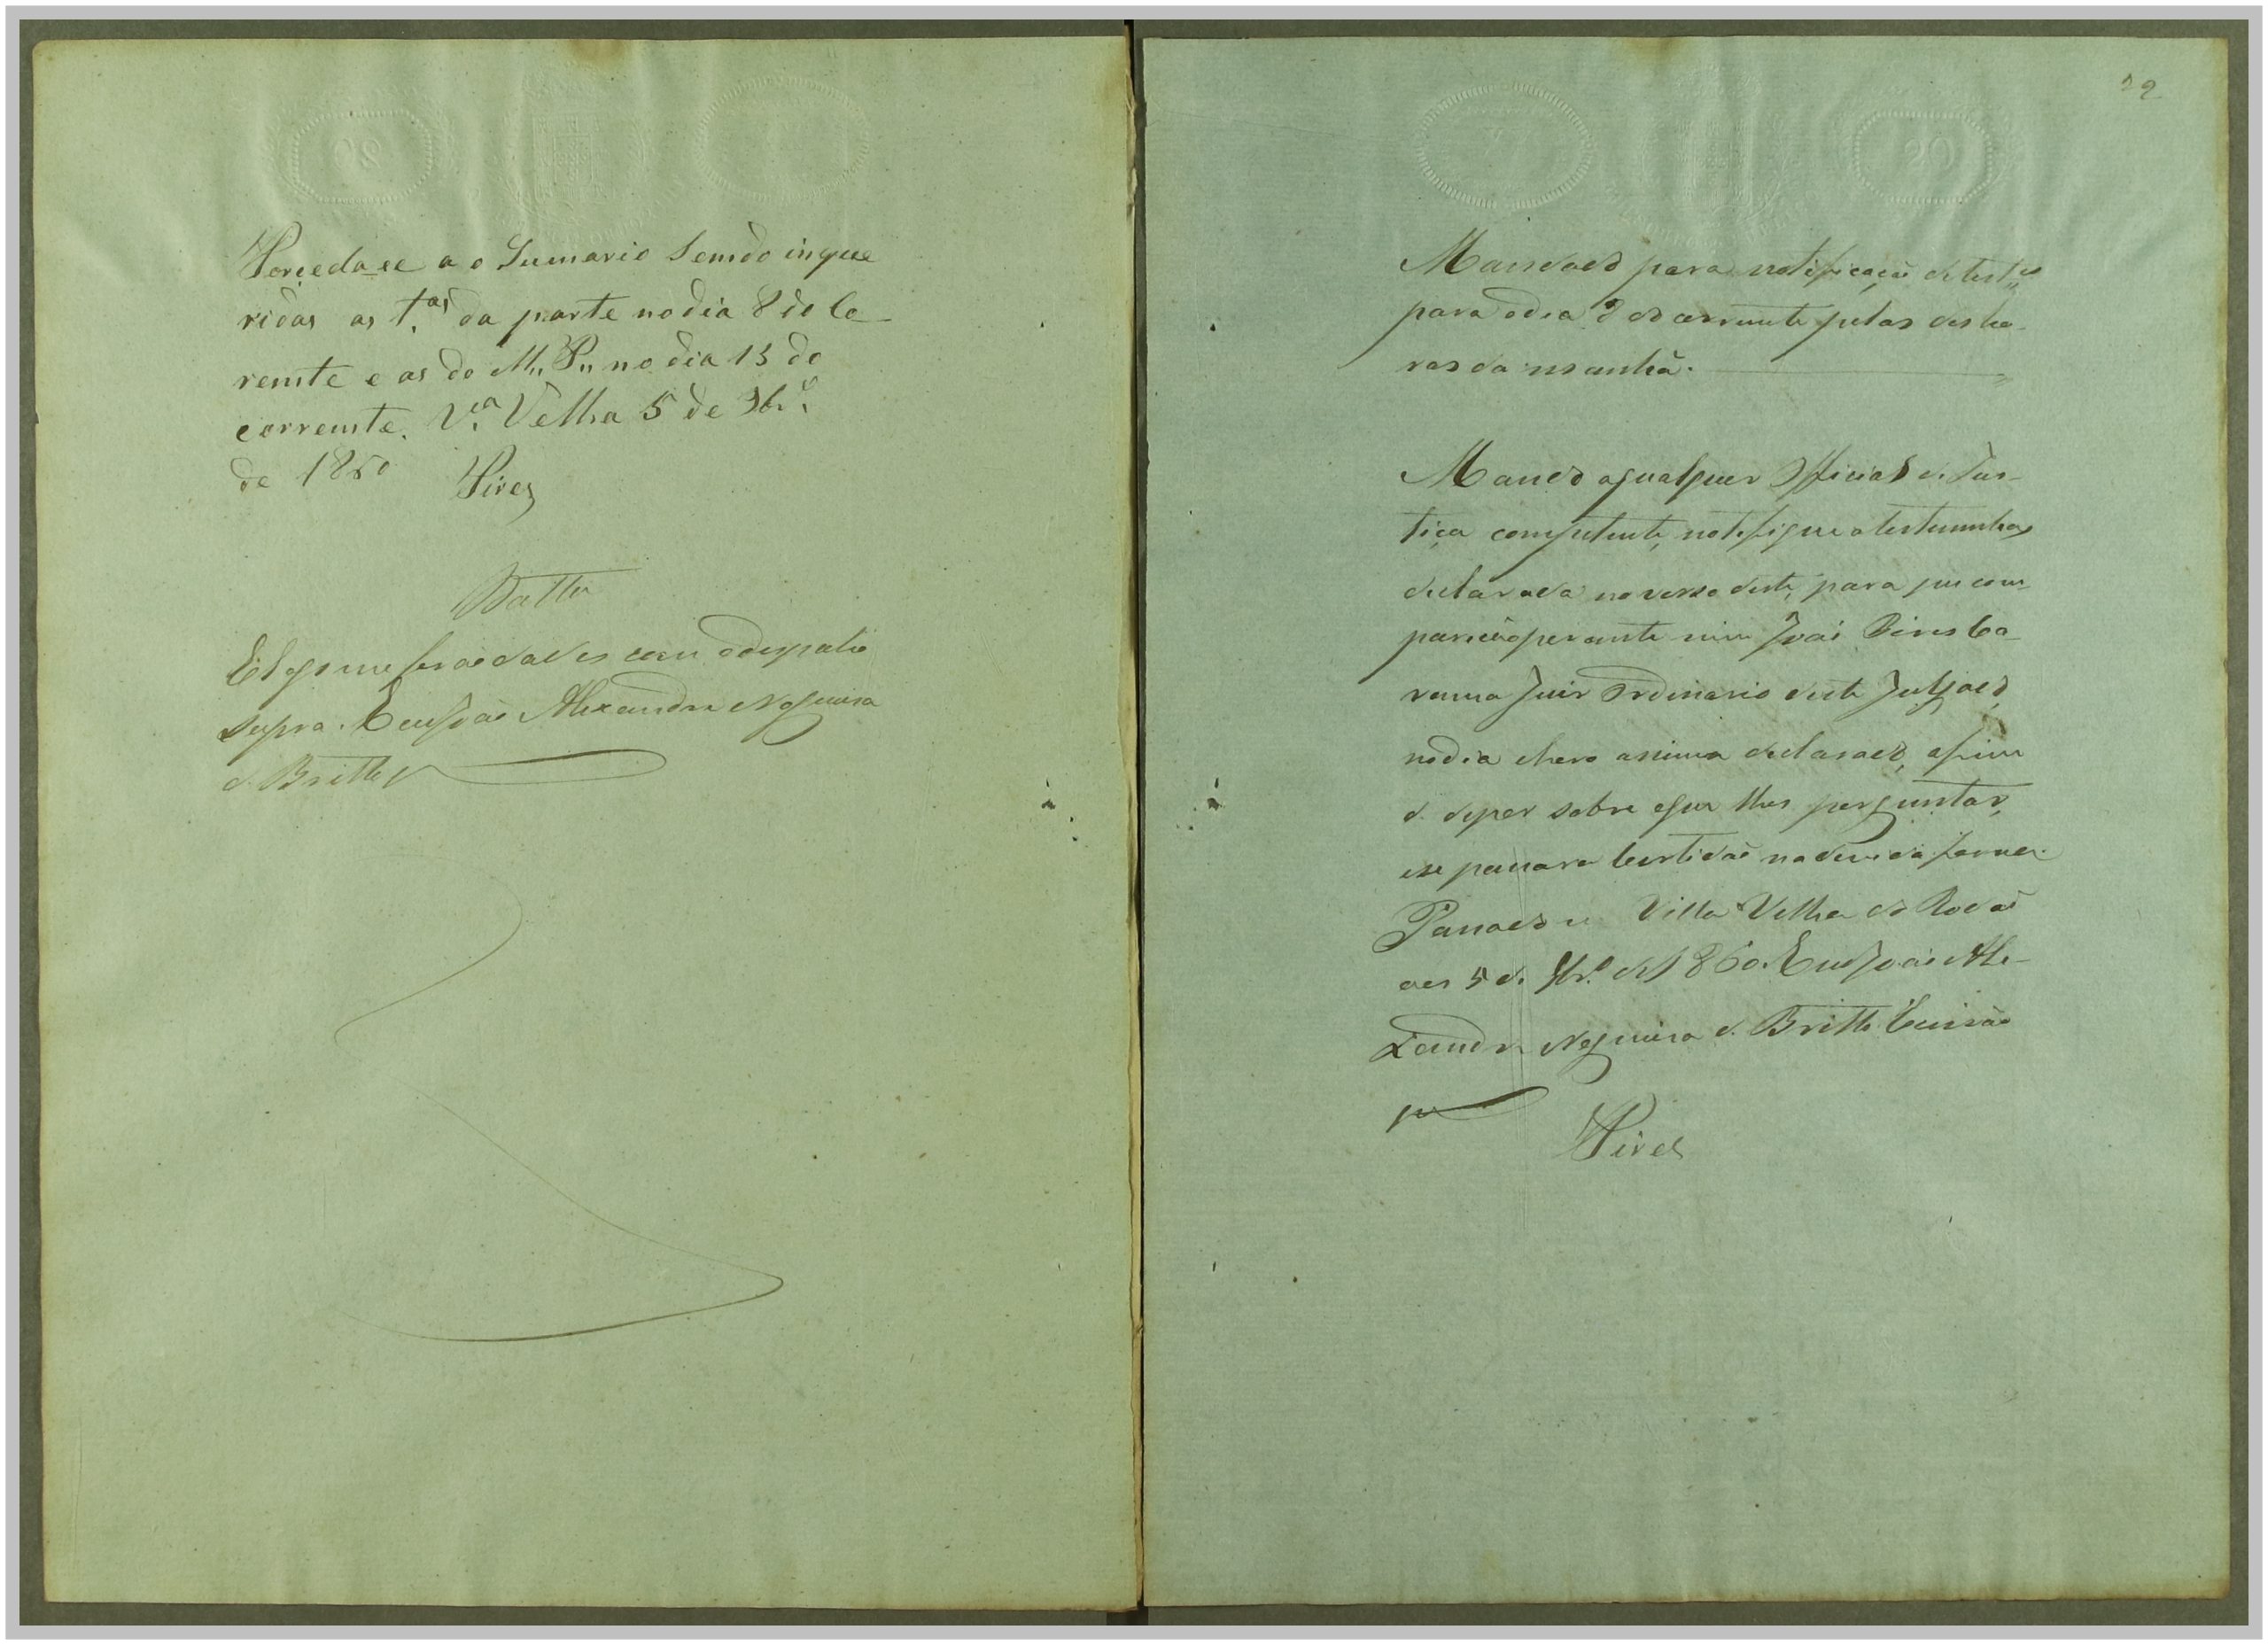 Porceda-se ao Sumario Semdo inque
ridas as t.as da parte no dia 8 do Co-
remte e as do M.,, P.,, no dia 13 do
corremte. V.ª Velha 5 de 9br.º
de 1860 Pires
Datta
E logo me forão dados com o despacho
supra. Eu João Alexandre Nogueira
de Britto
22
Mandado para notificação de test.as
para o dia 8 do corrente pelas des ho-
ras da manhã.
Mando a qualquer Official de Jus-
tiça competente, notifique a testemunhas
declarada no verso deste, para que com-
pareção perante mim João Pires Ca-
Juiz Ordinario deste Julgado,
no dia e hora asima declarado, afim
de depor sobre o que lhes perguntar,
e se passara Certidão na devida forma.
Passado em Villa Velha do Rodão
aos 5 de 9br.º de 1860. Eu João Ale-
xandre Nogueira de Britto Escrivão
Pires
20
20